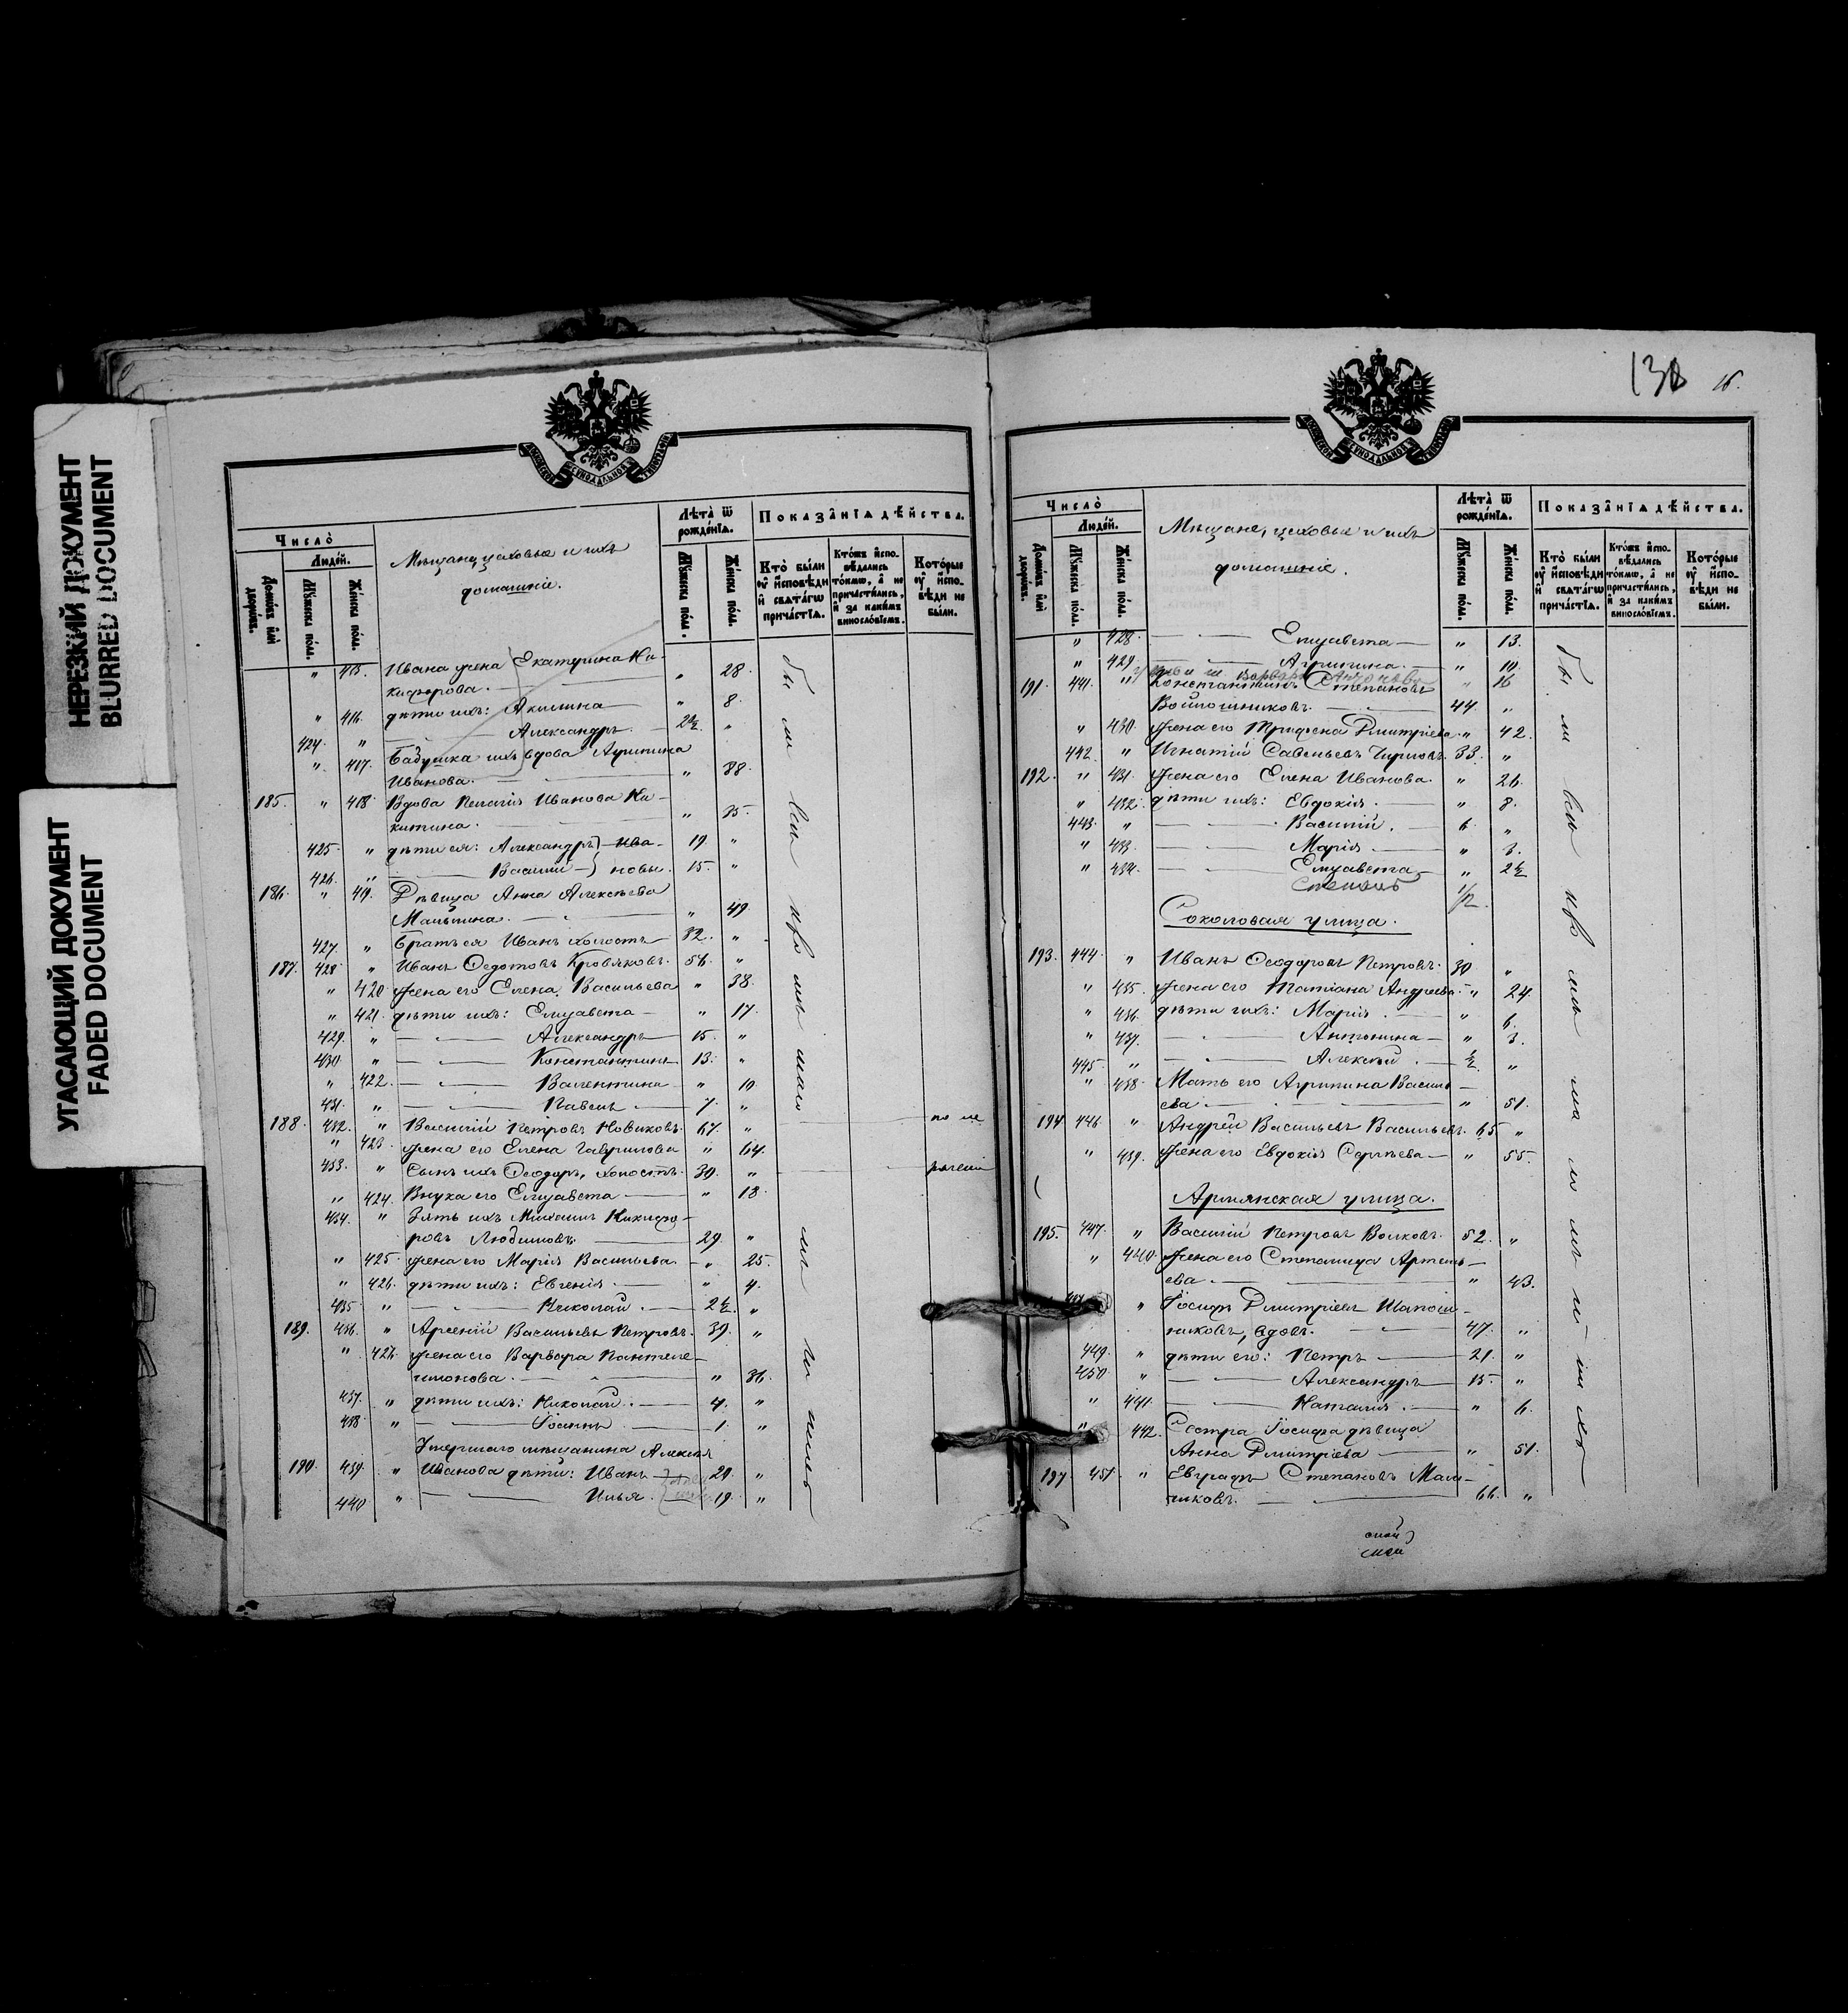 НЕРЕЗКИЙ ДОКУМЕНТ
BLURRED DOCUMENT
УГАСАЮЩИЙ ДОКУМЕНТ
FADED DOCUMENT
Число̀
Людей.
Домѡвъ или дворѡвъ.
Мꙋжеска полꙋ.
Женска полꙋ.
Мѣщане, цеховые и ихъ
домашніе.
Лѣта̀ ѿ рожде́нїѧ.
Мꙋжеска полꙋ.
Женска полꙋ.
Показа̑нїѧ дѣ́йства.
Кто̀ были ᲂу҆ и҆сповѣди и҆ свѧта́гѡ прича́стїѧ.
Кто́жъ и҆спо-вѣдались то́кмѡ, а҆ не причасти́лись, и҆ за каки́мъ винослове́мъ.
Кото́рые ᲂу҆ и҆спо-вѣди не были.
" 415. Ивана жена Екатерина Ни-
кифорова. " 28.
" 416. дѣти ихъ: Акилина " 8.
424. " Александръ 2½ "
" 417. Бабушка ихъ вдова Агрипина
Иванова. " 88.
185. " 418. Вдова Пелагія Иванова Ни-
китина. " 35.
425. " дѣти ея: Александръ Ива- 19. "
426. " Василій новы. 15. "
186. " 419. Дѣвица Анна Алексѣева
Мальгина. " 49
427. " Братъ ея Иванъ холостъ 32. "
187. 428. " Иванъ Ѳедотовъ Кровяковъ. 56. "
" 420 жена его Елена Васильева " 38.
" 421. дѣти ихъ: Елизавета " 17.
429. " Александръ 15. "
430 " Константинъ 13. "
" 422. Валентина " 10.
431. " Павелъ 7. "
188. 432. " Василій Петровъ Новиковъ. 67. " по не
" 423. жена его Елена Гаврилова " 64.
433. " Сынъ ихъ Ѳеодоръ, холостъ. 30. " рачени
" 424. Внука его Елизавета " 18.
434. " Зять ихъ Михаилъ Никифо-
ровъ Любимовъ 29. "
" 425. жена его Марія Васильева " 25.
" 426. дѣти ихъ: Евгенія " 4.
435. " Николай. 2½. "
189. 436. " Арсеній Васильевъ Петровъ. 39. "
" 427. жена его Варвара Пантеле-
имонова. " 36.
437. " дѣти ихъ: Николай. 4. "
438. " Іоаннъ 1. "
Умершаго мѣщанина Алексѣя
190. 439. " Иванова дѣти: Иванъ 20. "
440 " Илья. 19. "
130 16.
Число̀
Людей.
Домѡвъ или дворѡвъ.
Мꙋжеска полꙋ.
Женска полꙋ.
Мѣщане, цеховые и ихъ
домашніе.
Лѣта̀ ѿ рожде́нїѧ.
Мꙋжеска полꙋ.
Женска полꙋ.
Показа̑нїѧ дѣ́йства.
Кто̀ были ᲂу҆ и҆сповѣди и҆ свѧта́гѡ прича́стїѧ.
Кто́жъ и҆спо-вѣдались то́кмѡ, а҆ не причасти́лись, и҆ за каки́мъ винослове́мъ.
Кото́рые ᲂу҆ и҆спо-вѣди не были.
" 428. Елизавета " 13.
" 429. Агрипина. " 10.
Варвара Антонова " 16
191. 441. " Константинъ Степановъ
Войлошниковъ. 44. "
" 430. жена его Трифена Дмитріева " 42.
442. " Игнатій Савельевъ 33. "
192. " 431. жена его Елена Иванова. " 26.
" 432. дѣти ихъ: Евдокія. " 8.
443. " Василій. 6. "
" 433. Марія " 3.
" 434. Елизавета " 2½
Степанъ 1/2.
Соколовая улица.
193. 444. " Иванъ Ѳеодоровъ Петровъ. 30 "
" 435. жена его Татіана Андреева. " 24.
" 436. дѣти ихъ: Марія " 6.
" 437. Антонина " 3.
445. " Алексѣй. ½. "
" 438. Мать его Агрипина Василь-
ева " 51.
194 446. " Андрей Васильевъ Васильевъ. 65 "
" 439. жена его Евдокія Сергѣева " 55.
Армянская улица.
195. 447. " Василій Петровъ Волковъ. 52. "
" 440. жена его Степанида Артемь-
ева " 43.
" Іосифъ Дмитріевъ Шапош-
никовъ, вдовъ. 47. "
449. " дѣти его: Петръ 21. "
450. " Александръ 15. "
" 441. Наталія " 6.
" 442. Сестра Іосифа дѣвица
Анна Дмитріева " 51.
197 451. " Евграфъ Степановъ Маль-
чиковъ. 66. "